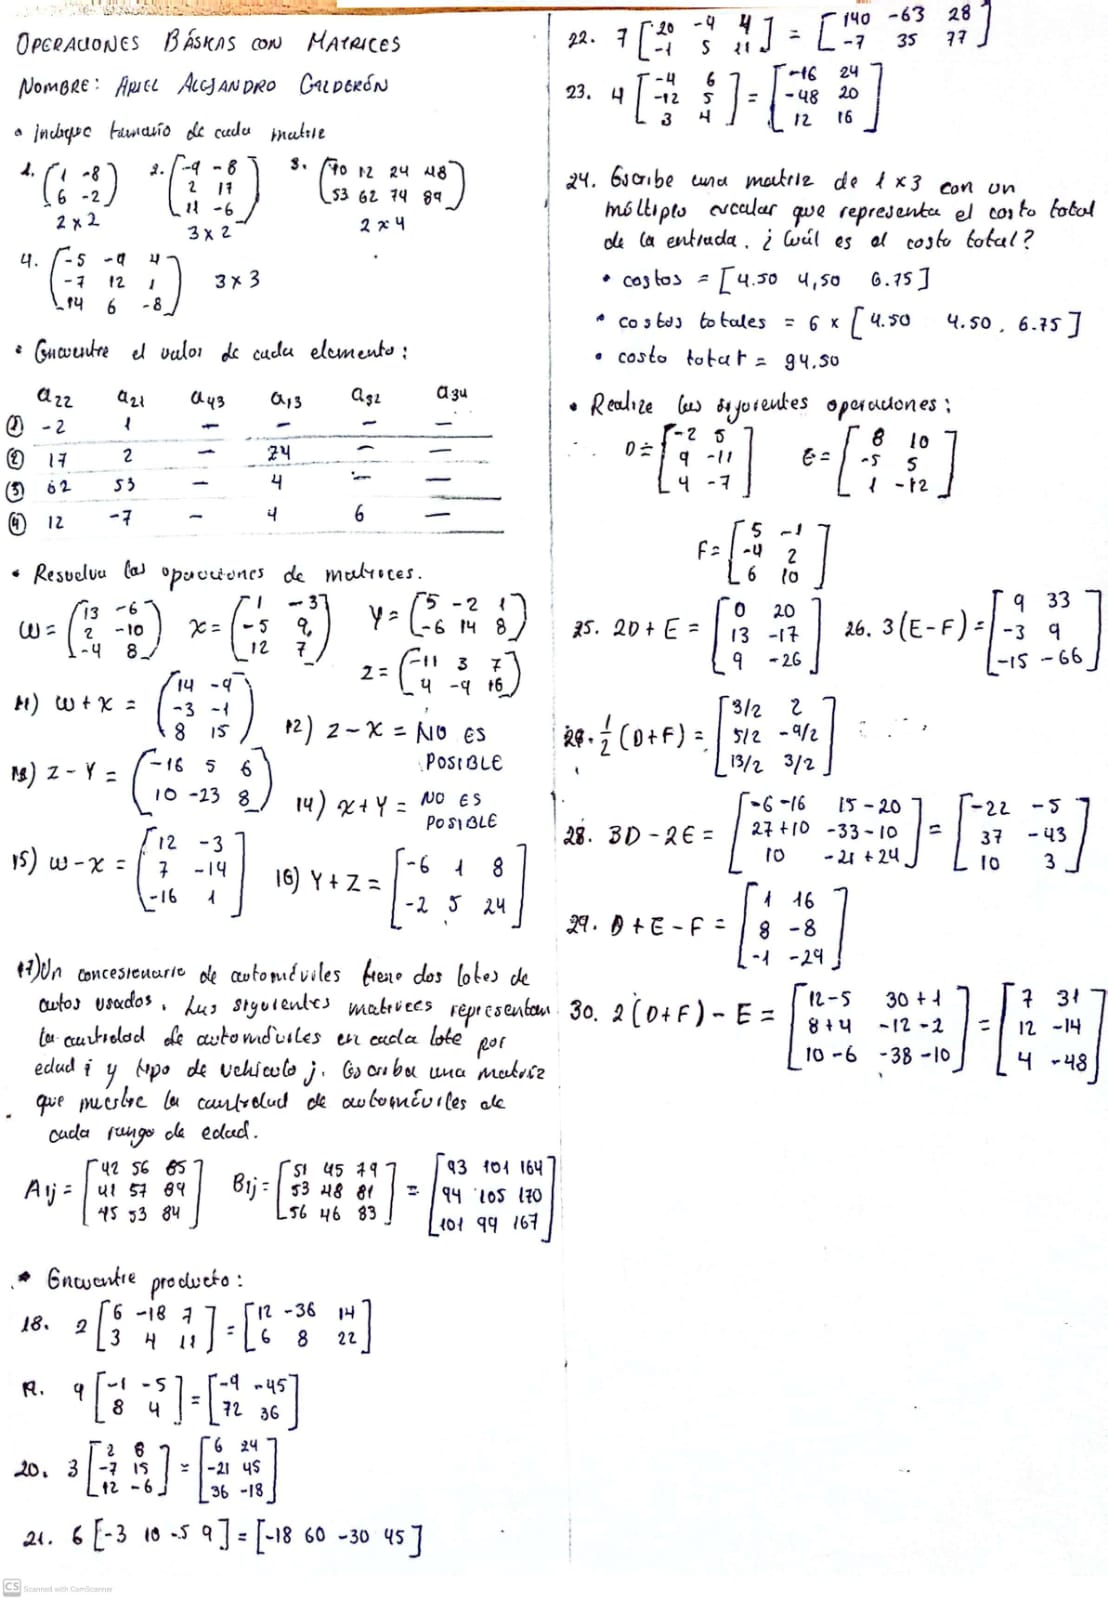 OPERACIONES BÁSICAS CON MATRICES
NOMBRE: ARIEL ALEJANDRO CALDERÓN
• indique tamaño de cada matriz
1. (1 -8
6 -2)
2 x 2
2. (-9 -8
2 17
11 -6)
3 x 2
3. (70 12 24 48
53 62 74 89)
2 x 4
4. (-5 -9 4
-7 12 1
14 6 -8)
3 x 3
• Encuentre el valor de cada elemento:
a22 a21 a43 a13 a32 a34
① -2 1 — — — —
② 17 2 — 24 — —
③ 62 53 — 4 — —
④ 12 -7 — 4 6 —
• Resuelva las operaciones de matrices.
W = (13 -6
2 -10
-4 8)
X = (1 -3
-5 9
12 7)
Y = (5 -2 1
-6 14 8)
Z = (-11 3 7
4 -9 16)
11) W + X = (14 -9
-3 -1
8 15)
12) Z - X = NO ES
POSIBLE
13) Z - Y = (-16 5 6
10 -23 8)
14) X + Y = NO ES
POSIBLE
15) W - X = [12 -3
7 -14
-16 1]
16) Y + Z = [-6 1 8
-2 5 24]
17) Un concesionario de automóviles tiene dos lotes de
autos usados. Las siguientes matrices representan
la cantidad de automóviles en cada lote por
edad i y tipo de vehículo j. Escriba una matriz
que muestre la cantidad de automóviles de
cada rango de edad.
A1j = [42 56 85
41 57 89
45 53 84]
B1j = [51 45 79
53 48 81
56 46 83] = [93 101 164
94 105 170
101 99 167]
• Encuentre producto:
18. 2 [6 -18 7
3 4 11] = [12 -36 14
6 8 22]
19. 9 [-1 -5
8 4] = [-9 -45
72 36]
20. 3 [2 8
-7 15
12 -6] = [6 24
-21 45
36 -18]
21. 6 [-3 10 -5 9] = [-18 60 -30 45]
22. 7 [20 -9 4
-1 5 11] = [140 -63 28
-7 35 77]
23. 4 [-4 6
-12 5
3 4] = [-16 24
-48 20
12 16]
24. Escribe una matriz de 1 x 3 con un
múltiplo escalar que representa el costo total
de la entrada. ¿Cuál es el costo total?
• costos = [4.50 4,50 6.75]
• costos totales = 6 x [4.50 4.50. 6.75]
• costo total = 94.50
• Realize las siguientes operaciones:
D = [-2 5
9 -11
4 -7]
E = [8 10
-5 5
1 -12]
F = [5 -1
-4 2
6 10]
25. 2D + E = [0 20
13 -17
9 -26]
26. 3(E-F) = [9 33
-3 9
-15 -66]
1/2 (D+F) = [3/2 2
5/2 -9/2
13/2 3/2]
28. 3D - 2E = [-6-16 15-20
27+10 -33-10
10 -21+24] = [-22 -5
37 -43
10 3]
29. D + E - F = [1 16
8 -8
-1 -29]
30. 2(D+F) - E = [12-5 30+1
8+4 -12-2
10-6 -38-10] = [7 31
12 -14
4 -48]
CS Scanned with CamScanner